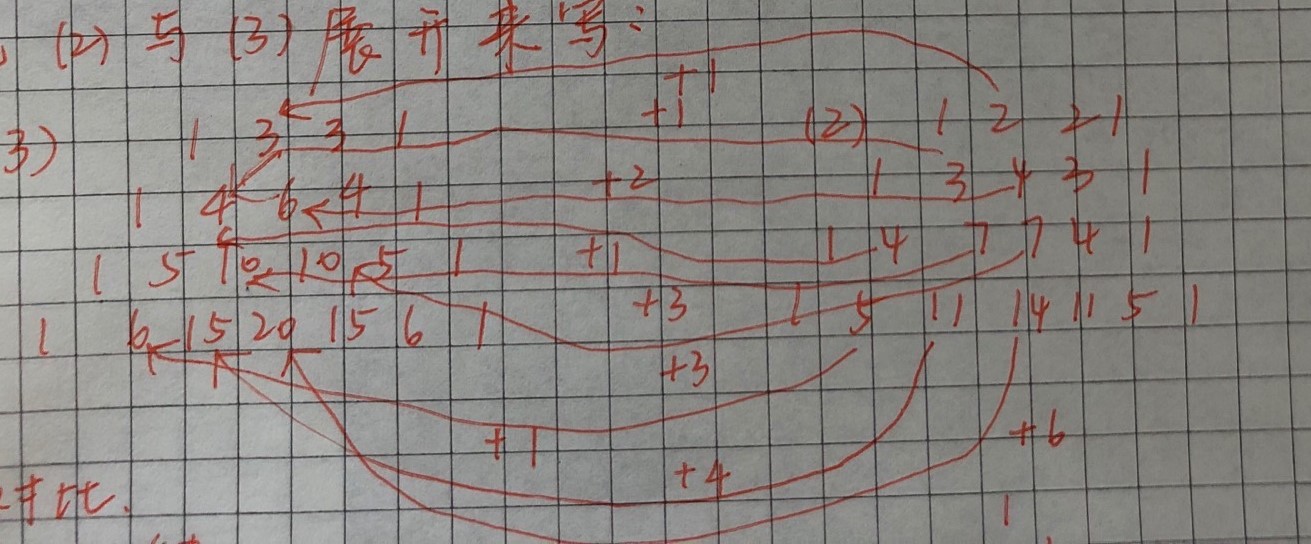 (2) 与 (3) 展开来写:
+1
3) 1 3 3 1 +1 (2) 1 2 2 1
1 4 6 4 1 +2 1 3 4 3 1
1 5 10 10 5 1 +1 1 4 7 7 4 1
1 6 15 20 15 6 1 +3 1 5 11 14 11 5 1
+3
+1 +6
+4
1